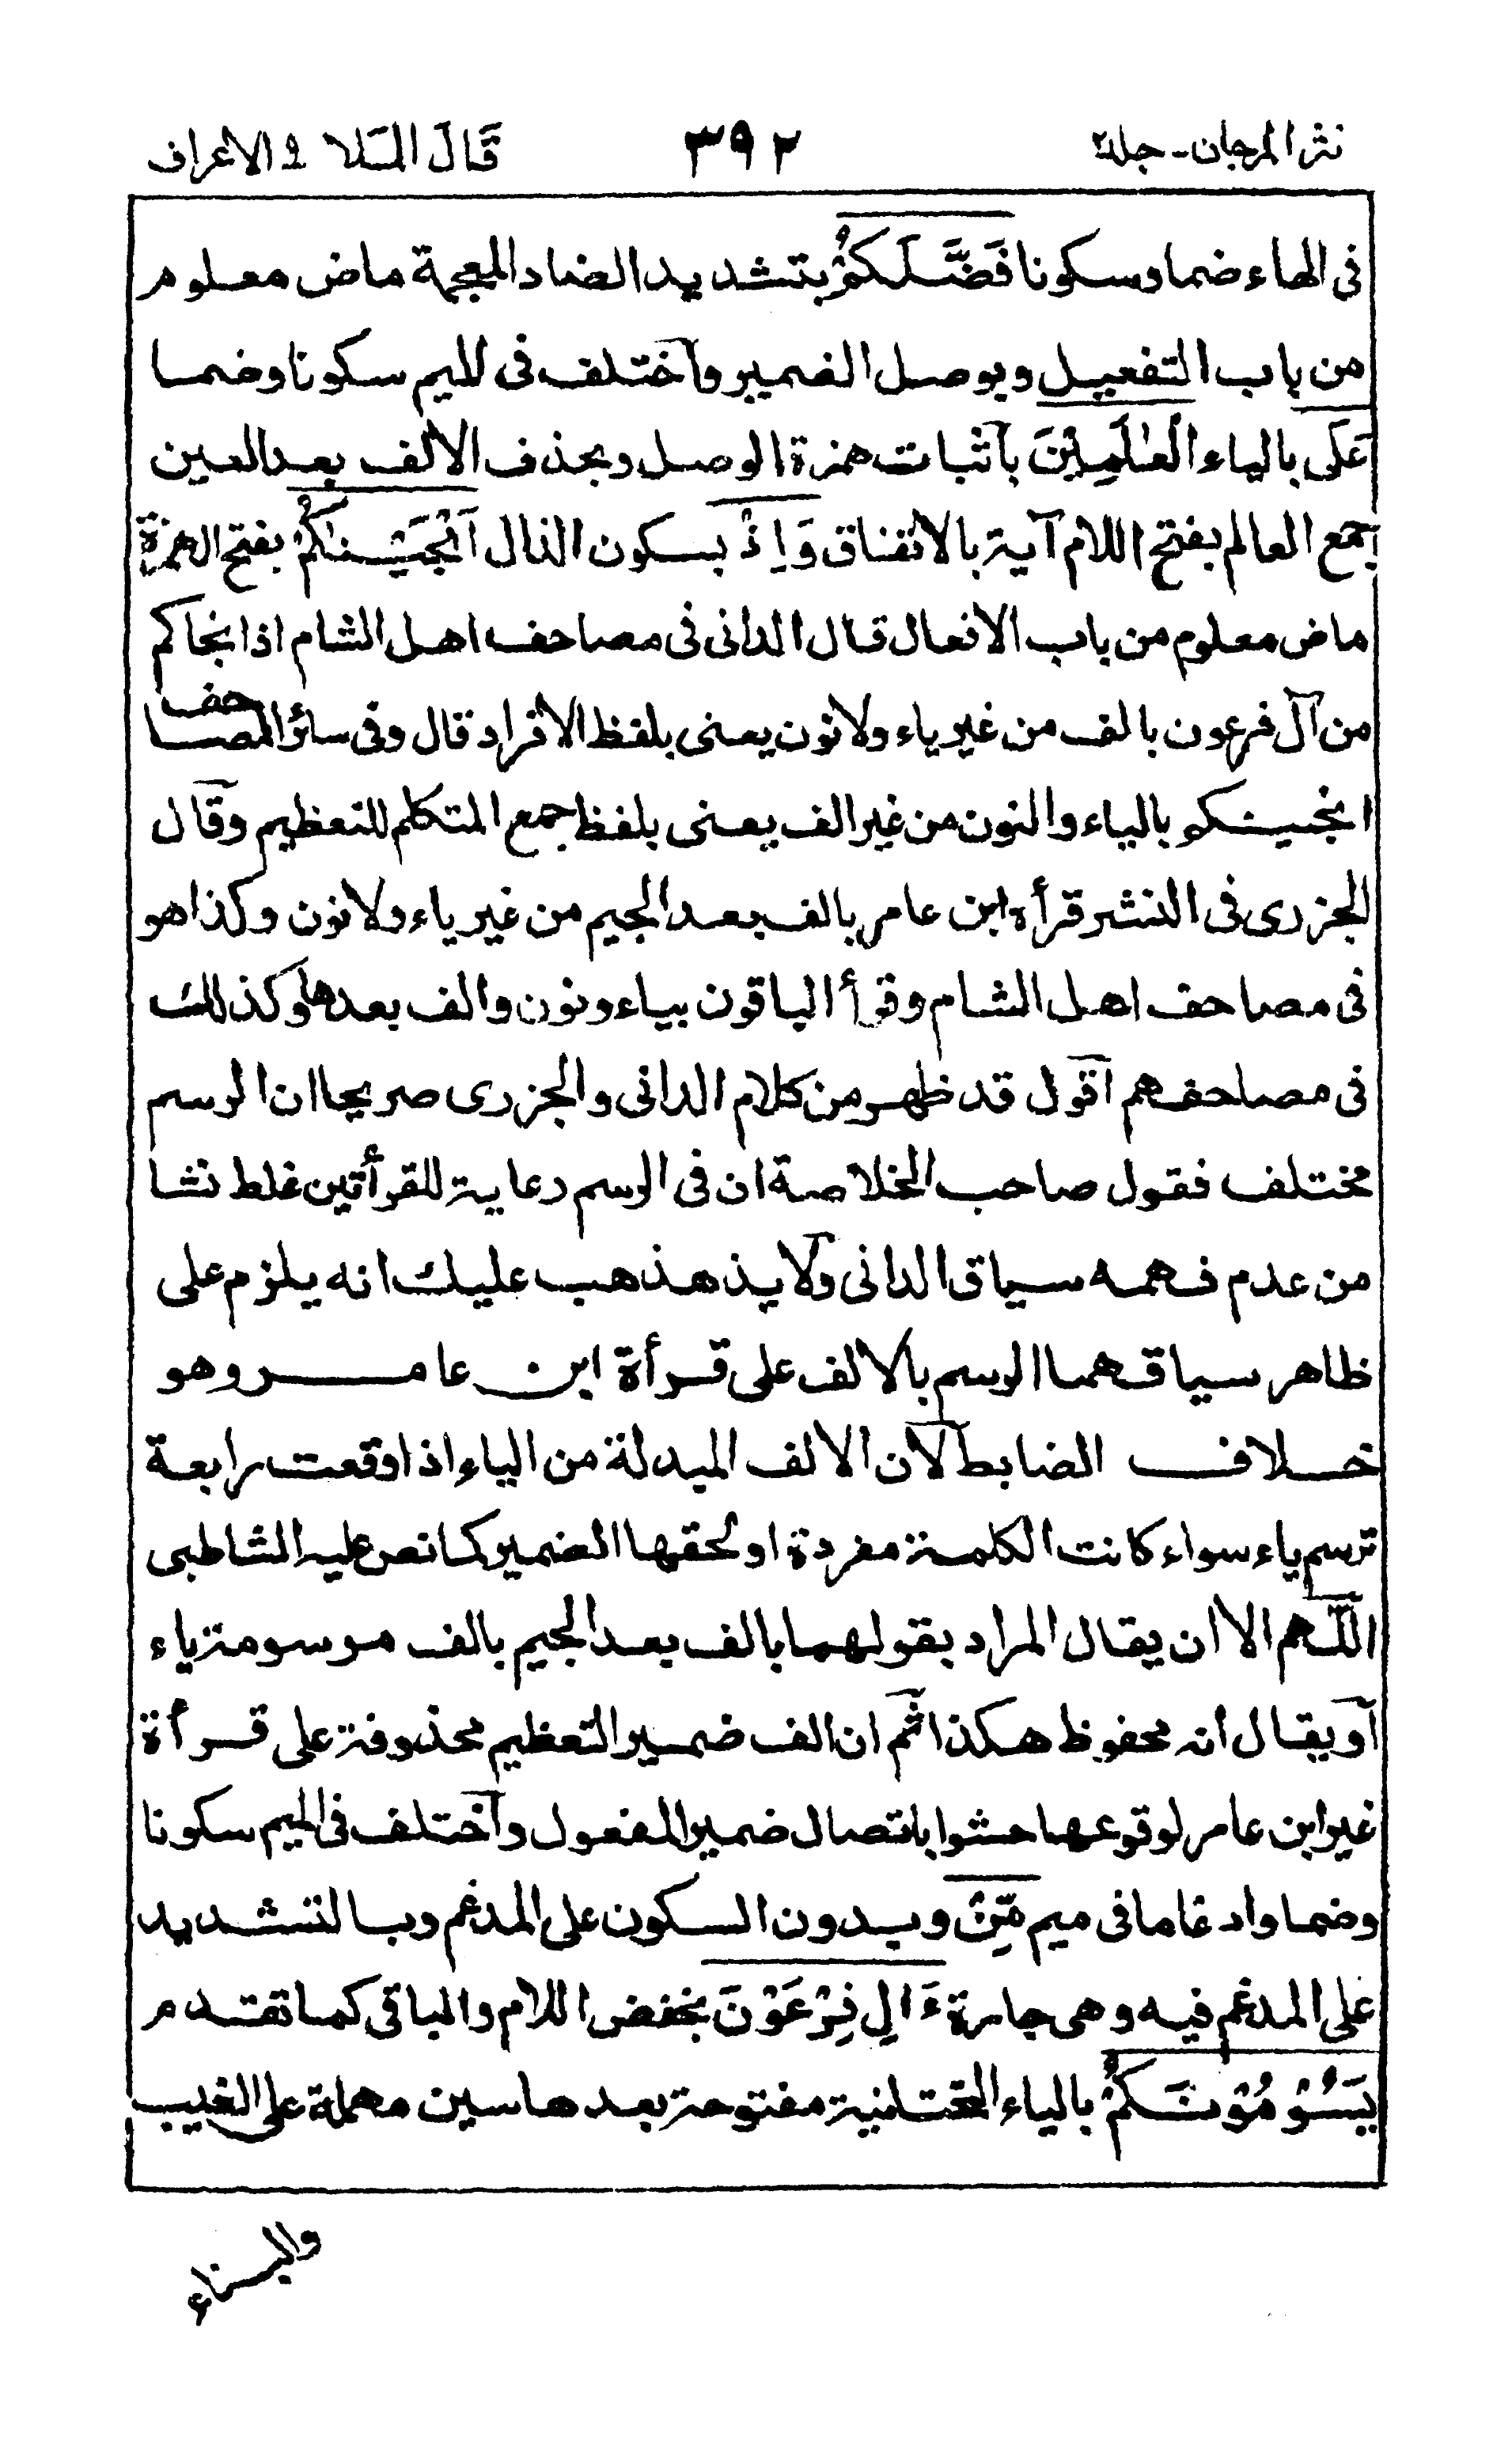 نثر المرجان - جلد ٢ ٣٩٢ قَالَ المَلا ٩ الاعراف
فى الهاء ضما وسكونا فَضَّلَكُمْ بتشديد الضاد المعجمة ماض معلوم
من باب التفعيل وبوصل الضمير وآختلف فى الميم سكونا وضما
عَلَى بالياء الْعٰلَمِيْنَ بآثبات همزة الوصل وبحذف الالف بعد العين
جمع العالم بفتح اللام آية بالاتفاق وَاِذْ بسكون الذال اَنْجَيْنٰكُمْ بفتح الهمزة
ماض معلوم من باب الافعال قال الدانى فى مصاحف اهل الشام اذ انجاكم
من آل فرعون بالف من غير ياء ولا نون يعنى بلفظ الافراد قال وفى سائر المصاحف
انجينكم بالياء والنون من غير الف يعنى بلفظ جمع المتكلم للتعظيم وقآل
الجزرى فى النشر قرأه ابن عامر بالف بعد الجيم من غير ياء ولا نون وكذا هو
فى مصاحف اهل الشام وقرأ الباقون بياء ونون والف بعدها وكذلك
فى مصاحفهم آقول قد ظهر من كلام الدانى والجزرى صريحا ان الرسم
مختلف فقول صاحب الخلاصة ان فى الرسم رعاية للقرأتين غلط نشا
من عدم فهمه سياق الدانى ولآ يذ هذهب عليك انه يلزم على
ظاهر سياقهما الرسم بالالف على قرأة ابن عامر وهو
خلاف الضابط لآن الالف المبدلة من الياء اذا وقعت رابعة
ترسم ياء سواء كانت الكلمة مفردة او لحقها الضمير كما نص عليه الشاطبى
اللّهم الا ان يقال المراد بقولهما بالف بعد الجيم بالف مرسومة ياء
آو يقال أنه محفوظ هكذا ثم ان الف ضمير التعظيم محذوفة على قرأة
غير ابن عامر لوقوعها حشوا باتصال ضمير المفعول وآختلف فى الميم سكونا
وضما وادغاما فى ميم مِّنْ وبدون السكون على المدغم وبالتشديد
على المدغم فيه وهى جارة ءَالِ فِرْعَوْنَ بخفض اللام والباقى كما تقدم
يَسُوْمُوْنَكُمْ بالياء التحتانية مفتوحة بعدها سين مهملة على الغيب
والبناء